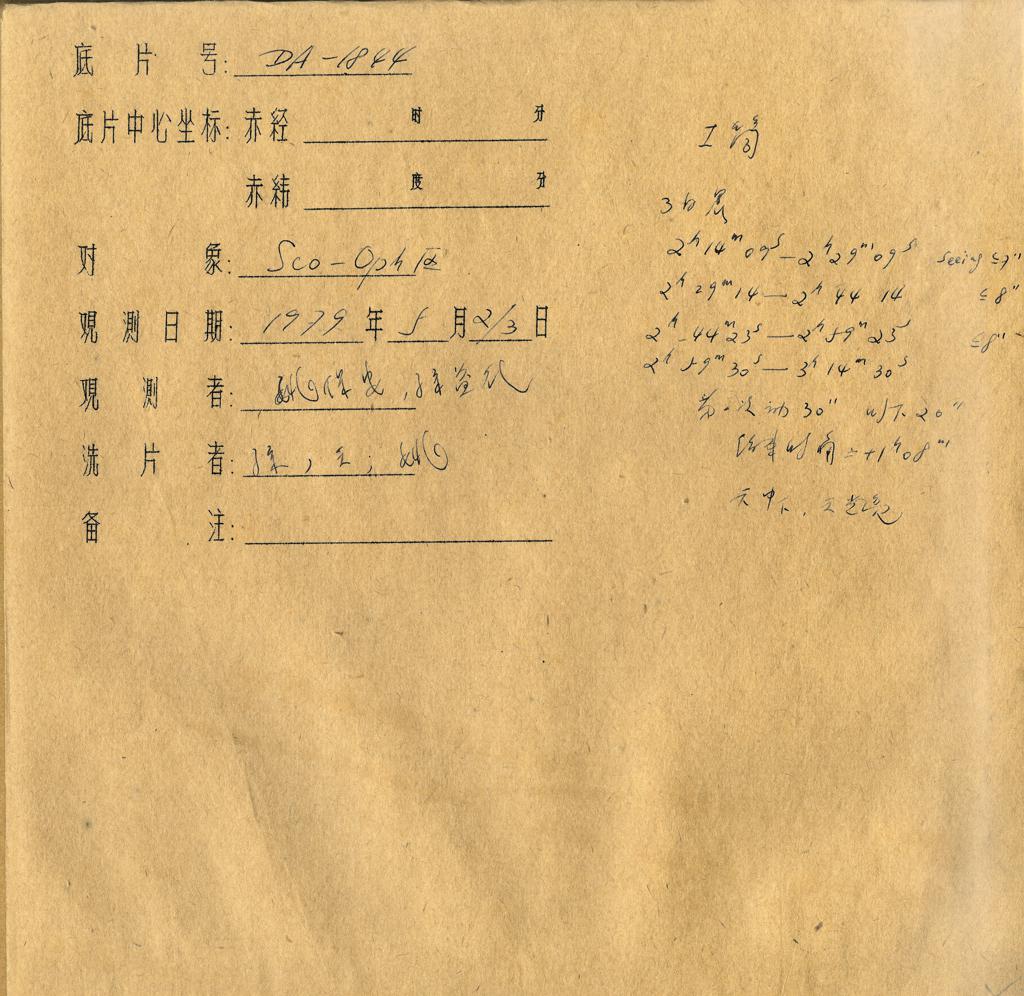 底片号: DA-1844
底片中心坐标: 赤经 时 分
赤纬 度 分
对象: Sco-Oph区
观测日期: 1979年5月2/3日
观测者:
洗片者:
备注:
I 筒
3日晨
2h14m09s — 2h29m09s seeing ≤7"
2h29m14 — 2h44 14 ≤8"
2h44m23s — 2h59m23s ≤8"
2h59m30s — 3h14m30s
第一次动30" 以下20"
结束时角 = +1h08m